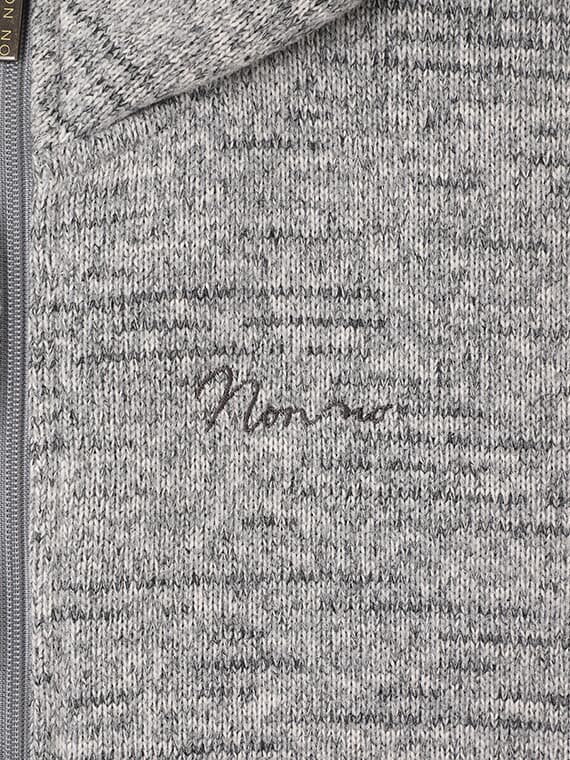 ON NO
Non-no